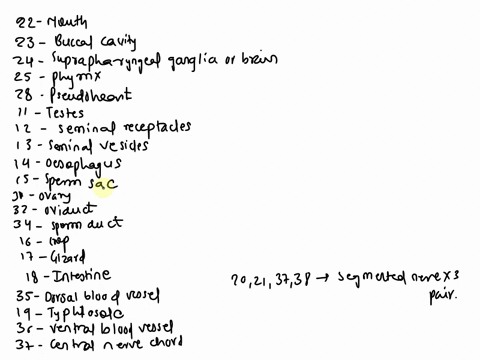 22- Mouth
23- Buccal cavity
24- Suprapharyngeal ganglia or brain
25- phyrnx
28- Pseudoheart
11- Testes
12- Seminal receptacles
13- Seminal vesides
14- Oesophagus
15- Sperm sac
30- ovary
32- oviduct
34- sperm duct
16- crop
17- Gizard
18- Intestine
20,21,37,38 → segmented nerve x 3
pair.
35- Dorsal blood vessel
19- Typhlosole
36- ventral blood vessel
37- Central nerve chord